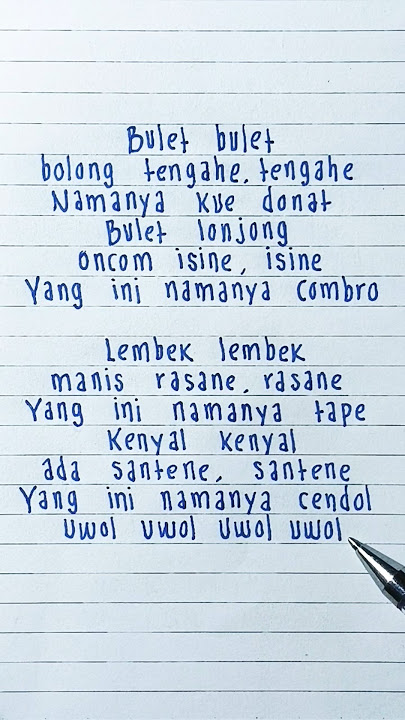 Bulet bulet
bolong tengahe, tengahe
Namanya kue donat
Bulet lonjong
oncom isine, isine
Yang ini namanya combro
Lembek lembek
manis rasane, rasane
Yang ini namanya tape
Kenyal kenyal
ada santene, santene
Yang ini namanya cendol
Uwol uwol uwol uwol